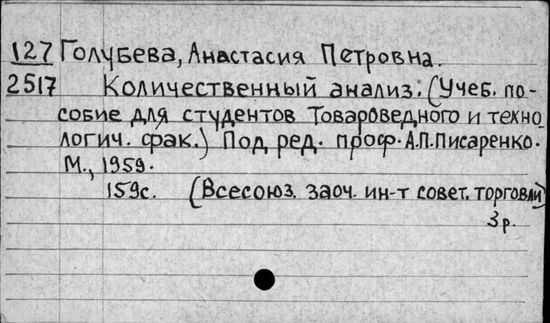 127 Голубева, Анастасия Петровна.
2517 Количественный анализ. (Учеб. по-
собие для студентов Товароведного и техно
логич. фак.) Под ред. проф. А.П.Писаренко.
М., 1959.
159с. (Всесоюз. заоч. ин-т совет. торговли)
3р.